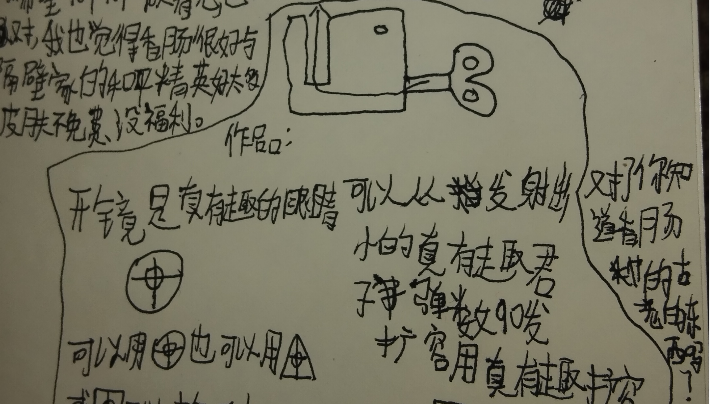 对,我也觉得香肠很好与
隔壁家的和平精英好太多
皮肤不免费、没福利。
作品:
开镜是真有趣的眼睛
可以用也可以用
可以从发射出
小的真有趣君
子弹弹数90发
扩容用真有趣扩容
对了你知
道香肠
的古
老的东
西吗?